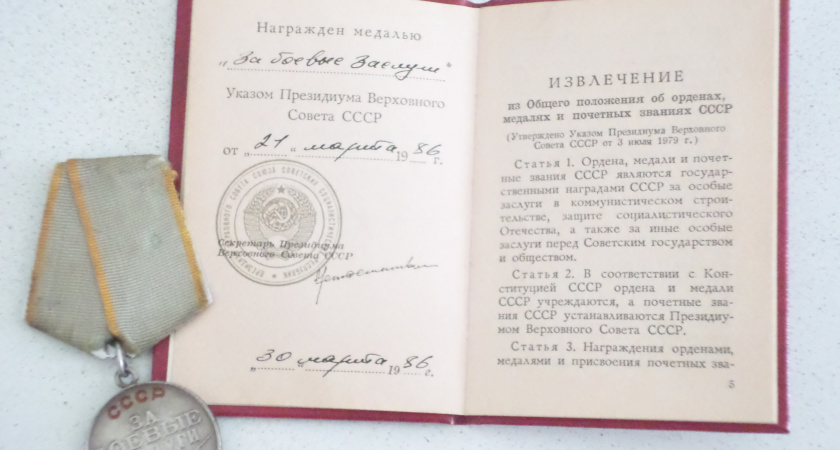 Награжден медалью
„За боевые Заслуги"
Указом Президиума Верховного
Совета СССР
от „21„ марта 1986 г.
Секретарь Президиума
Верховного Совета СССР
„30„ марта 1986 г.
СССР
ЗА
БОЕВЫЕ
ИЗВЛЕЧЕНИЕ
из Общего положения об орденах,
медалях и почетных званиях СССР
(Утверждено Указом Президиума Верховного
Совета СССР от 3 июля 1979 г.)
Статья 1. Ордена, медали и почет-
ные звания СССР являются государ-
ственными наградами СССР за особые
заслуги в коммунистическом строи-
тельстве, защите социалистического
Отечества, а также за иные особые
заслуги перед Советским государством
и обществом.
Статья 2. В соответствии с Кон-
ституцией СССР ордена и медали
СССР учреждаются, а почетные зва-
ния СССР устанавливаются Президиу-
мом Верховного Совета СССР.
Статья 3. Награждения орденами,
медалями и присвоения почетных зва-
5